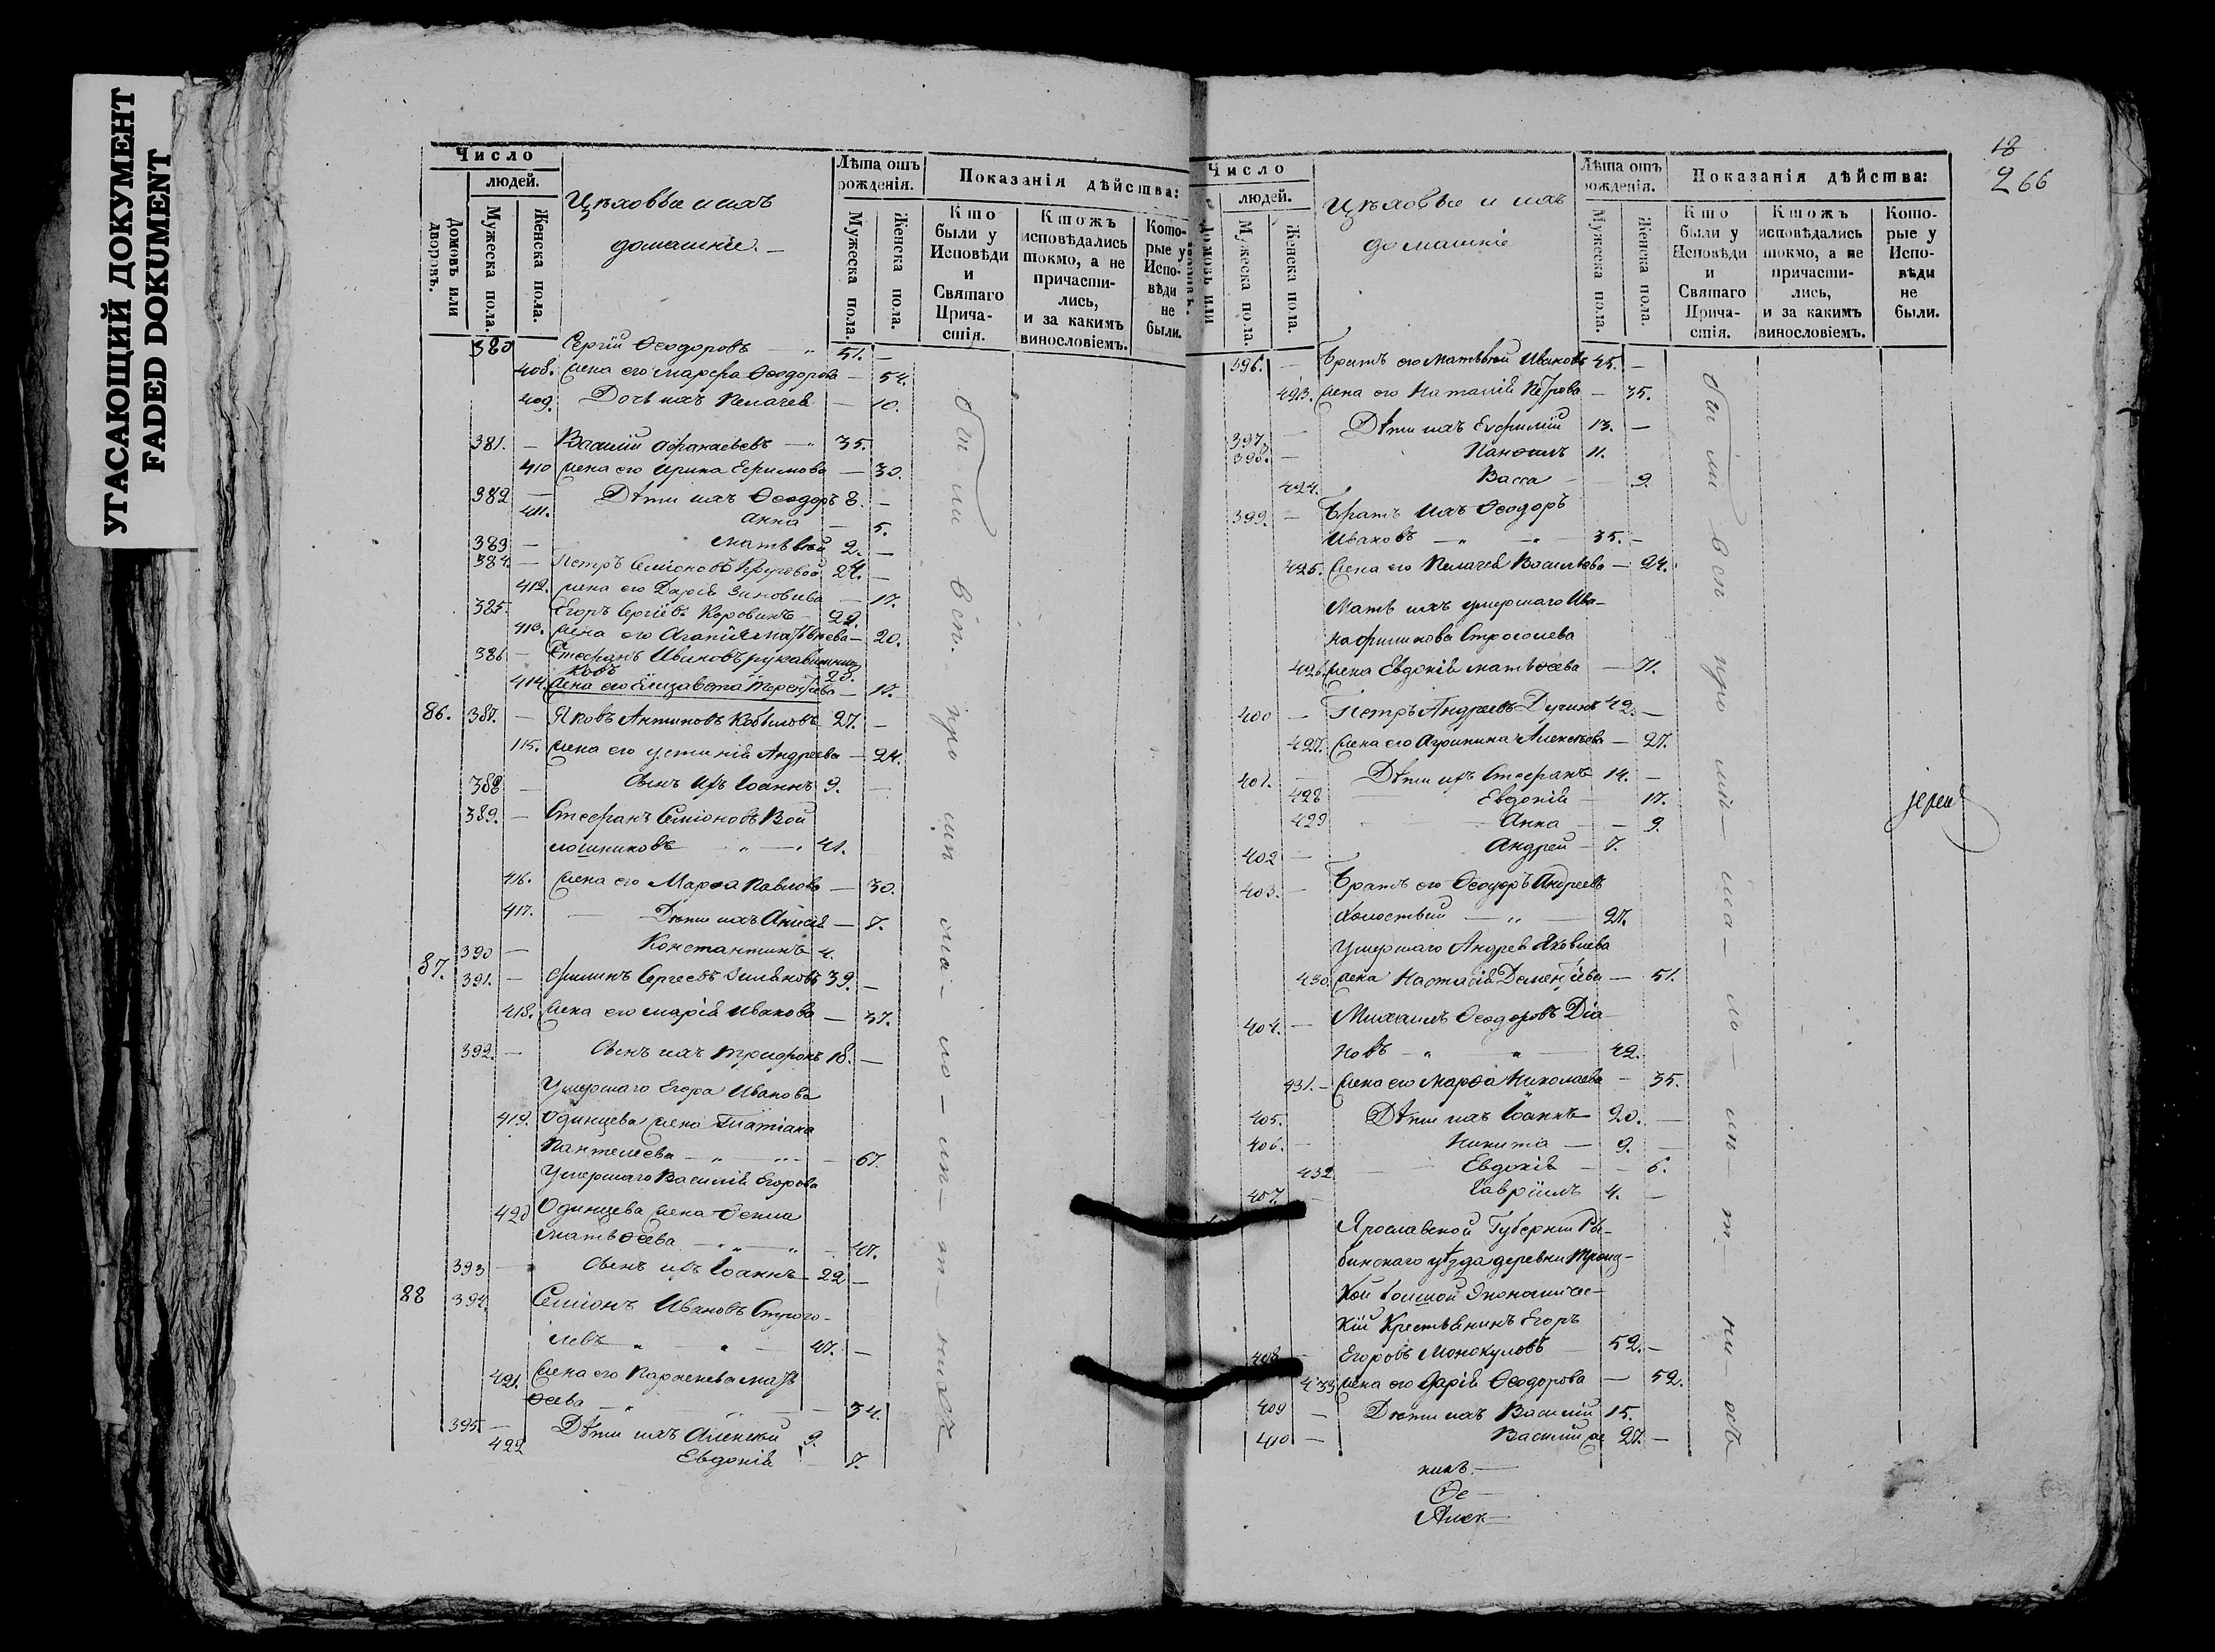 УГАСАЮЩИЙ ДОКУМЕНТ
FADED DOKUMENT
Число
людей.
Домовъ или дворовъ.
Мужеска пола.
Женска пола.
Цѣховые и ихъ
домашніе.
Лѣта отъ рожденія.
Мужеска пола.
Женска пола.
Показанія дѣйства:
Кто были у Исповѣди и Святаго Причастія.
Ктожъ исповѣдались токмо, а не причастились, и за какимъ винословіемъ.
Которые у Исповѣди не были.
380 Сергій Ѳеодоровъ — 51. —
408. жена его Марфа Ѳеодорова — 54.
409. Дочь ихъ Пелагея — 10.
381. — Василій Афанасьевъ — 35.
410 жена его Ирина Ефимова — 30.
382 — Дѣти ихъ Ѳеодоръ 8. —
411. Анна — 5.
383 — Матвѣй 2. —
384. — Петръ Семіоновъ 24. —
412. жена его Дарія Зиновьева — 17.
385. Егоръ Сергіевъ Коровинъ 22.
413. жена его Агапія Матвѣева — 20.
386 — Стефанъ Ивановъ рукавишни
ковъ 20.
414. жена его Елизавета Терентьева — 17.
86. 387. — Яковъ Антиповъ Кобыловъ 27. —
115. жена его Устинія Андреева — 24.
388 — Сынъ ихъ Іоаннъ 9. —
389. — Стефанъ Семіоновъ Вой
лошниковъ — 41.
416. жена его Марѳа Павлова — 30.
417. — Дѣти ихъ Анисія — 7.
390 — Константинъ 4.
87. 391. — Филипъ Сергеевъ 39. —
418. жена его Марія Иванова — 37.
392. — Сынъ ихъ Трифонъ 18. —
Умершаго Егора Иванова
419. Одинцева жена Татіана
Пантелеева — 67.
Умершаго Василія Егорова
420 Одинцева жена
Матвѳеева — 47.
393 — Сынъ ихъ Іоаннъ 22 —
88 394. Семіонъ Ивановъ Строго-
левъ — 47. —
421. жена его Параскева Матв
ѳеева — 34.
395 — Дѣти ихъ Алексѣй 9.
422 Евдокія — 7.
были всѣ
18
266
Число
людей.
Домовъ или дворовъ.
Мужеска пола.
Женска пола.
Цѣховые и ихъ
домашніе
Лѣта отъ рожденія.
Мужеска пола.
Женска пола.
Показанія дѣйства:
Кто были у Исповѣди и Святаго Причастія.
Ктожъ исповѣдались токмо, а не причастились, и за какимъ винословіемъ.
Которые у Исповѣди не были.
396. — Братъ его Матвѣй Ивановъ 45. —
423. жена его Наталія Петрова — 35.
397. — Дѣти ихъ Евфимій 13. —
398. — 11.
424. Васса — 9.
399. — Братъ ихъ Ѳеодоръ
Ивановъ — 35. —
425. жена его Пелагея Васильева — 24.
Мать ихъ умершаго Ива-
на Филипова Строголева
426. жена Евдокія Матвѳеева — 71.
400 — Петръ Андреевъ Дучинъ 42. —
427. жена его Агрипина Алексѣева — 27.
401. — Дѣти ихъ Стефанъ 14. —
428 Евдокія — 17.
429 Анна — 9.
402 — Андрей — 7.
403. — Братъ его Ѳеодоръ Андреевъ
холостый — 27.
Умершаго Андрея Яковлева
430. жена Настасія Дементьева — 51.
404. — Михаилъ Ѳеодоровъ Діа
новъ — 42.
431. — жена его Марѳа Николаева — 35.
405. Дѣти ихъ Іоаннъ 20. —
406. — Никита — 9. —
432 Евдокія — 6.
407. — Гавріилъ 4. —
Ярославской Губерніи Ры-
бинскаго уѣзда деревни Троиц-
кой Экономиче-
кій Крестьянинъ Егоръ
408 Егоровъ Монокуловъ 52. —
433 жена его Дарія Ѳеодорова — 52.
409 — Дѣти ихъ Василій 15.
410 — Василій же 27. —
были всѣ